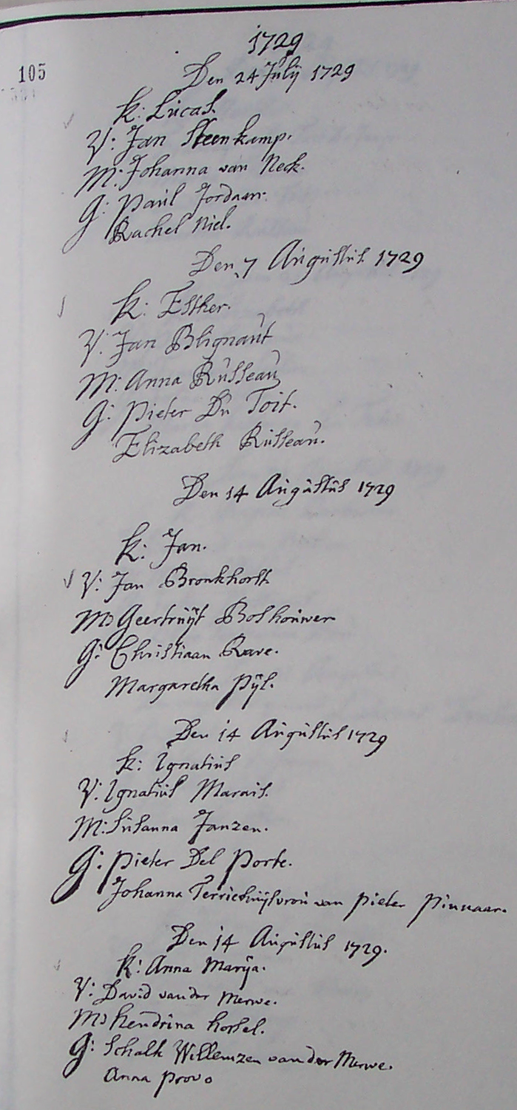 1729
105
Den 24 Julij 1729
K: Lucas.
V: Jan Steenkamp.
M: Johanna van Neck.
G: Paul Jordaan.
Rachel Niel.
Den 7 Augustus 1729
K: Esther.
V: Jan Blignaut
M: Anna Russeau
G: Pieter Du Toit.
Elizabeth Russeau.
Den 14 Augustus 1729
K: Jan.
V: Jan Bronkhorst
M: Geertruijt Boshouwer
G: Christiaan Rave.
Margaretha Pijl.
Den 14 Augustus 1729
K: Ignatius
V: Ignatius Marais.
M: Susanna Janzen.
G: Pieter Del Porte.
Johanna vrou van Pieter Pinnaar.
Den 14 Augustus 1729.
K: Anna Marija.
V: David van der Merwe.
M: Hendrina
G: Schalk Willemzen van der Merwe.
Anna Provo